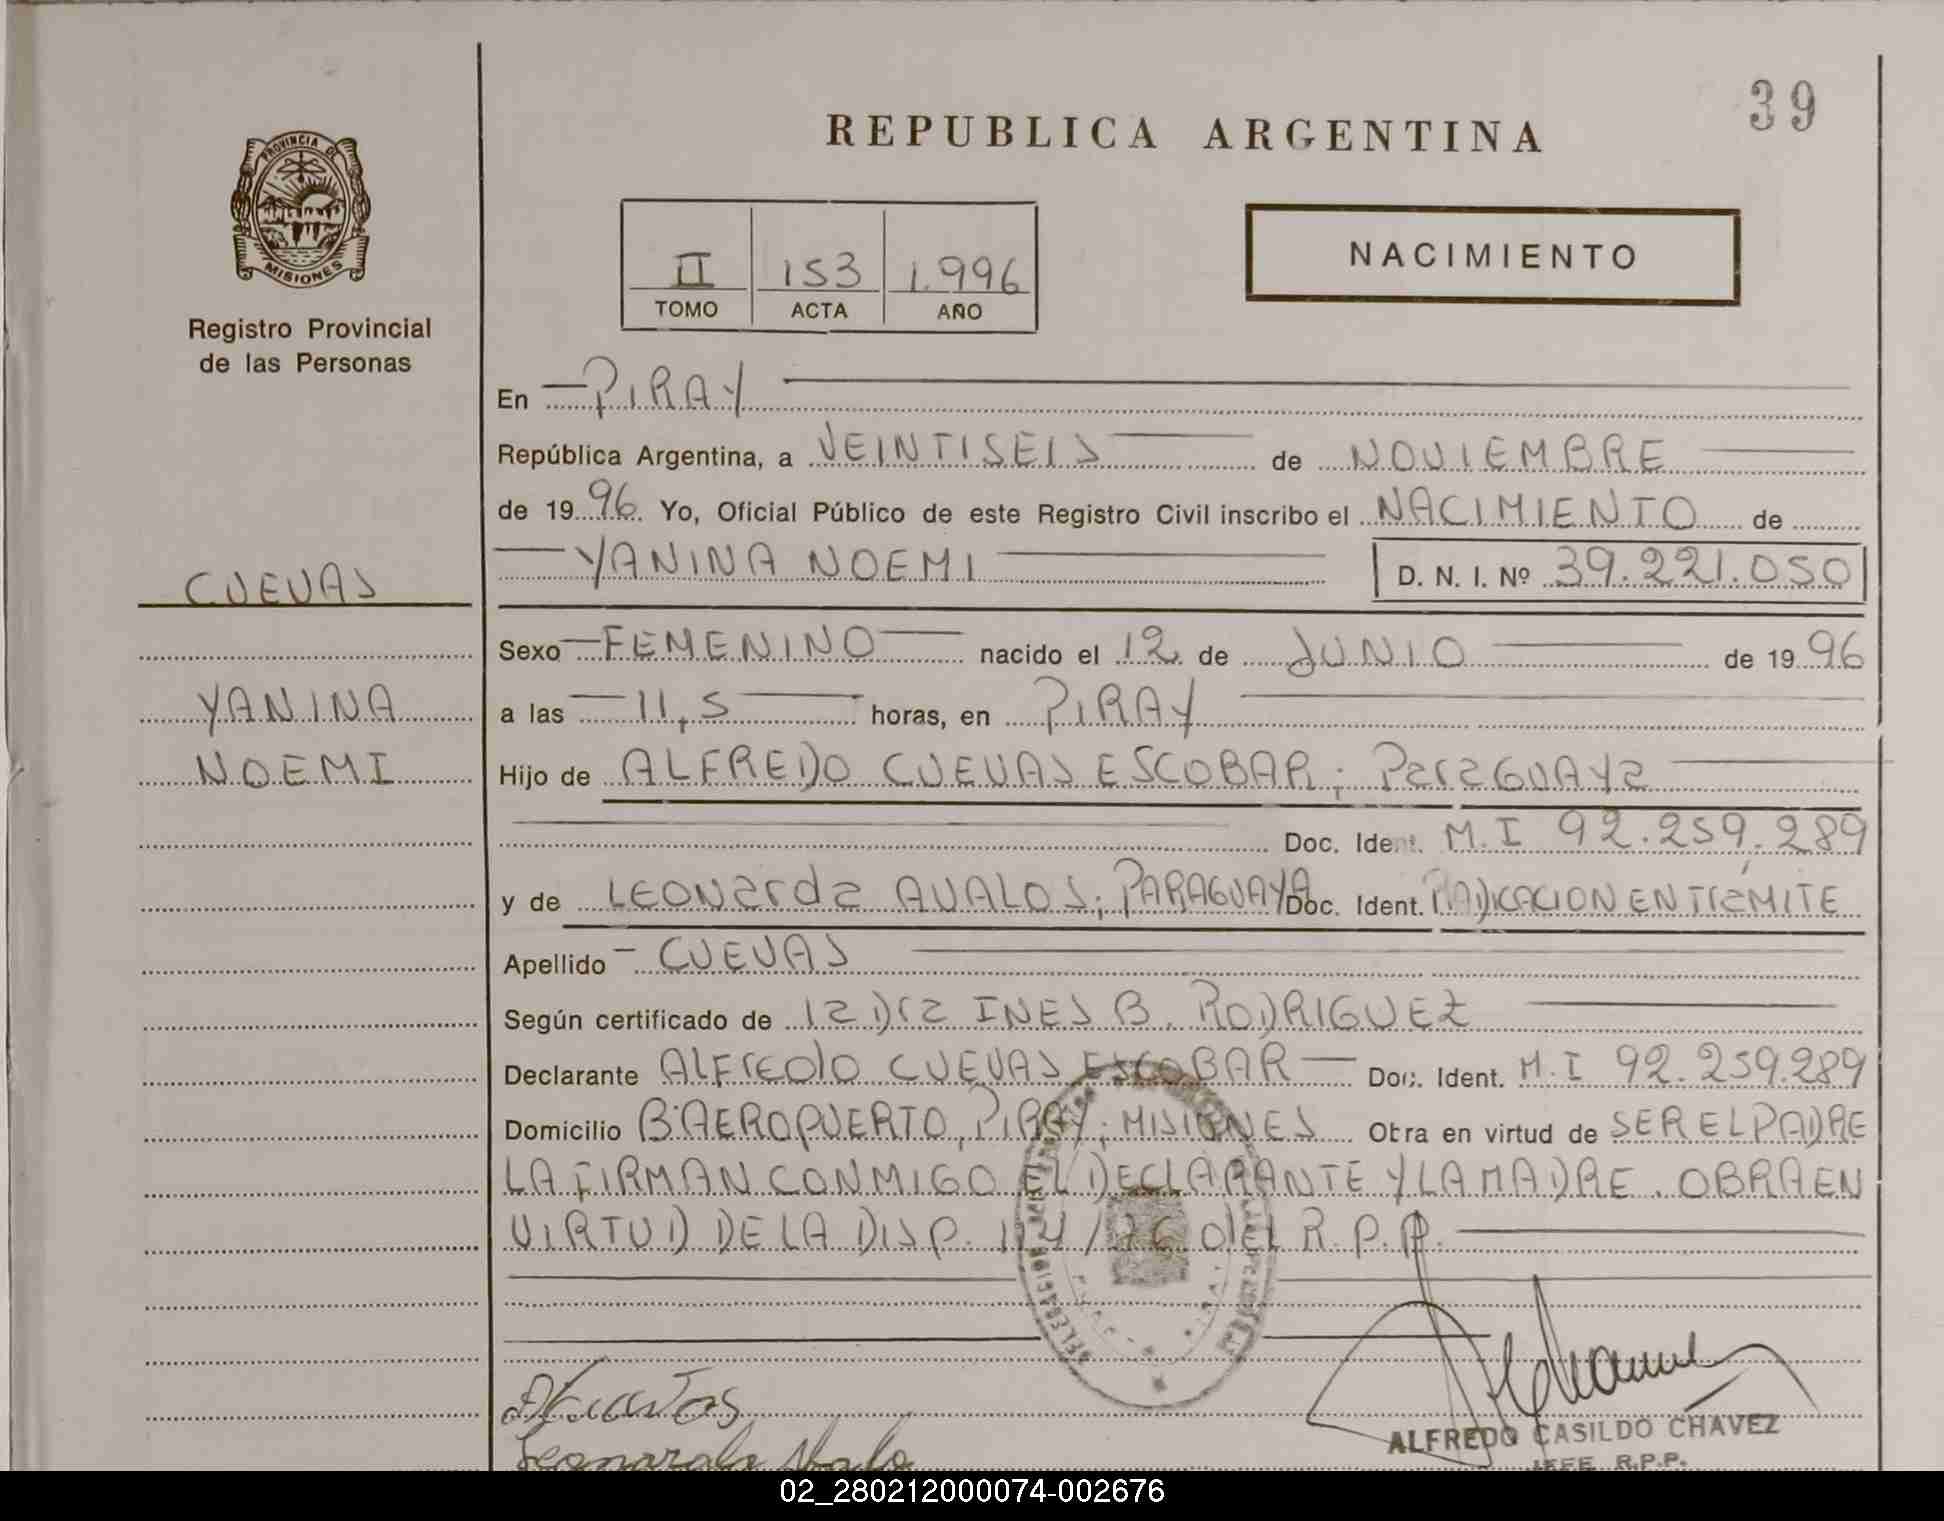 39
REPUBLICA ARGENTINA
PROVINCIA DE
MISIONES
Registro Provincial
de las Personas
II 153 1.996
TOMO ACTA AÑO
NACIMIENTO
En PIRAY
República Argentina, a VEINTISEIS de NOVIEMBRE
de 1996 Yo, Oficial Público de este Registro Civil inscribo el NACIMIENTO de
YANINA NOEMI D. N. I. Nº 39.221.050
CUEVAS
Sexo FEMENINO nacido el 12 de JUNIO de 1996
YANINA
a las 11,5 horas, en PIRAY
NOEMI
Hijo de ALFREDO CUEVAS ESCOBAR; ParaGUAYa
Doc. Ident. M.I 92.259.289
y de LEONarda AVALOS; PARAGUAYA Doc. Ident. RADICACION EN TraMITE
Apellido CUEVAS
Según certificado de la Dra INES B. RODRIGUEZ
Declarante ALFredo CUEVAS ESCOBAR Doc. Ident. M.I 92.259.289
Domicilio Bº AEROPUERTO, PIRAY; MISIONES Otra en virtud de SER EL PADRE
LA FIRMAN CONMIGO EL DECLARANTE Y LA MADRE. OBRA EN
VIRTUD DE LA DISP. 114/76 del R.P.P.
Leonarda Avalo
ALFREDO CASILDO CHAVEZ
JEFE R.P.P.
02_280212000074-002676